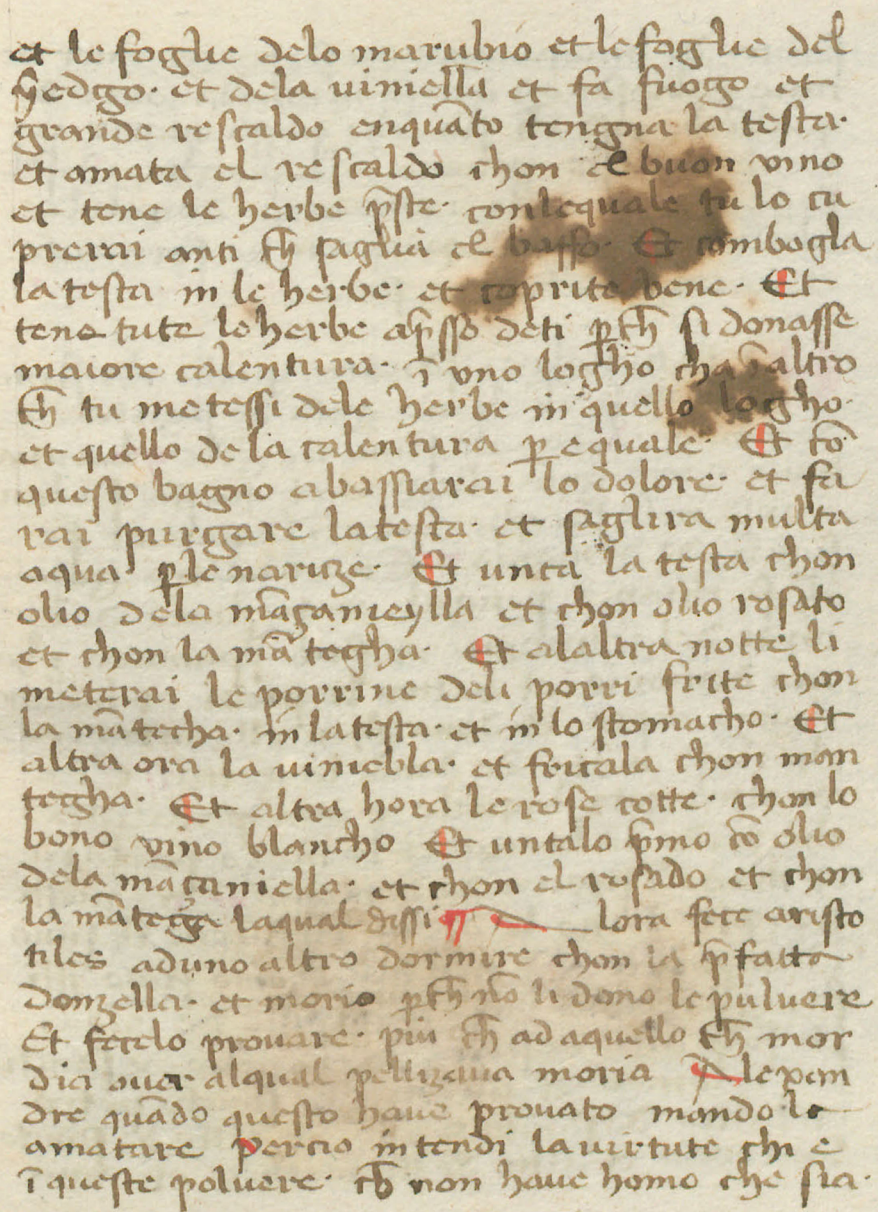 et le foglie delo marubio et le foglie del
yedgo· et dela viniella et fa fuogo et
grande rescaldo enquāto tengna la testa·
et amata el rescaldo chon el buon vino
et tene le herbe p̄ste· con lequale tu lo cu
prerai anti ch̄ saglia el baffo· Et combogla
la testa in le herbe· et coprite bene· Et
tene tute le herbe ap̄sso deti ꝑch̄ si donasse
maiore calentura· ī uno logho cha ī altro
ch̄ tu metessi dele herbe in quello logho·
et quello dela calentura ꝑ equale· Et cō
questo bagno abassiarai lo dolore· et fa
rai purgare la testa· et saglira multa
aqua ꝑ le naritze· Et unta la testa chon
olio dela māzanieylla et chon olio rosato
et chon la mātegha· Et alaltra notte li
meterai le porrine deli porri frite chon
la mātecha· in la testa· et in lo stomacho· Et
altra ora la viniebla· et fricala chon man
tegha· Et altra hora le rose cotte· chon lo
bono vino blancho Et untalo p̄mo cō olio
dela māçaniella· et chon el rosado et chon
la mātega laqual dissi ¶ Alora fece aristo
tiles ad uno altro dormire chon la p̄fatta
donzella· et morio ꝑch̄ nō li dono le pulvere
Et fecelo provare· piu ch̄ ad aquello ch̄ mor
dia over alqual pellizava moria Alexan
dre quādo questo have provato mandola
amatare percio intendi la virtute chi e
ī queste polvere· ch̄ non have homo che sia·